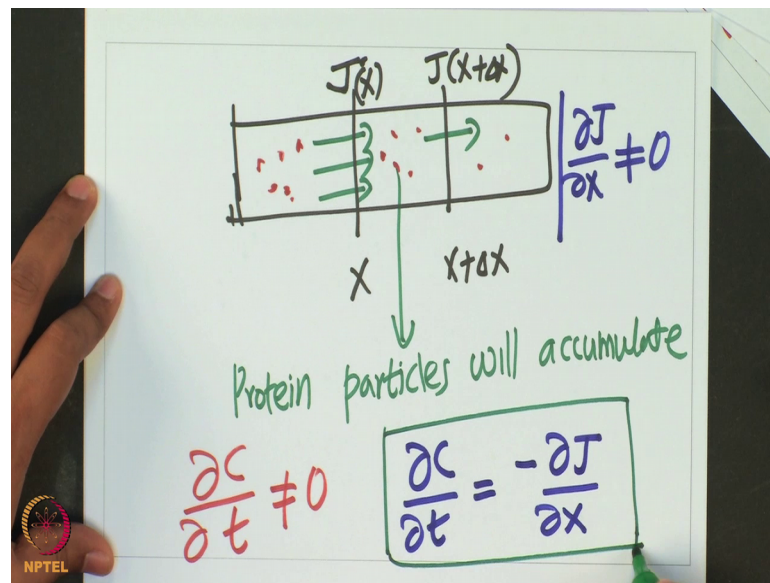 J(x) J(x+Δx)
∂J/∂x ≠ 0
x x+Δx
Protein particles will accumulate
∂C/∂t ≠ 0 ∂C/∂t = -∂J/∂x
NPTEL